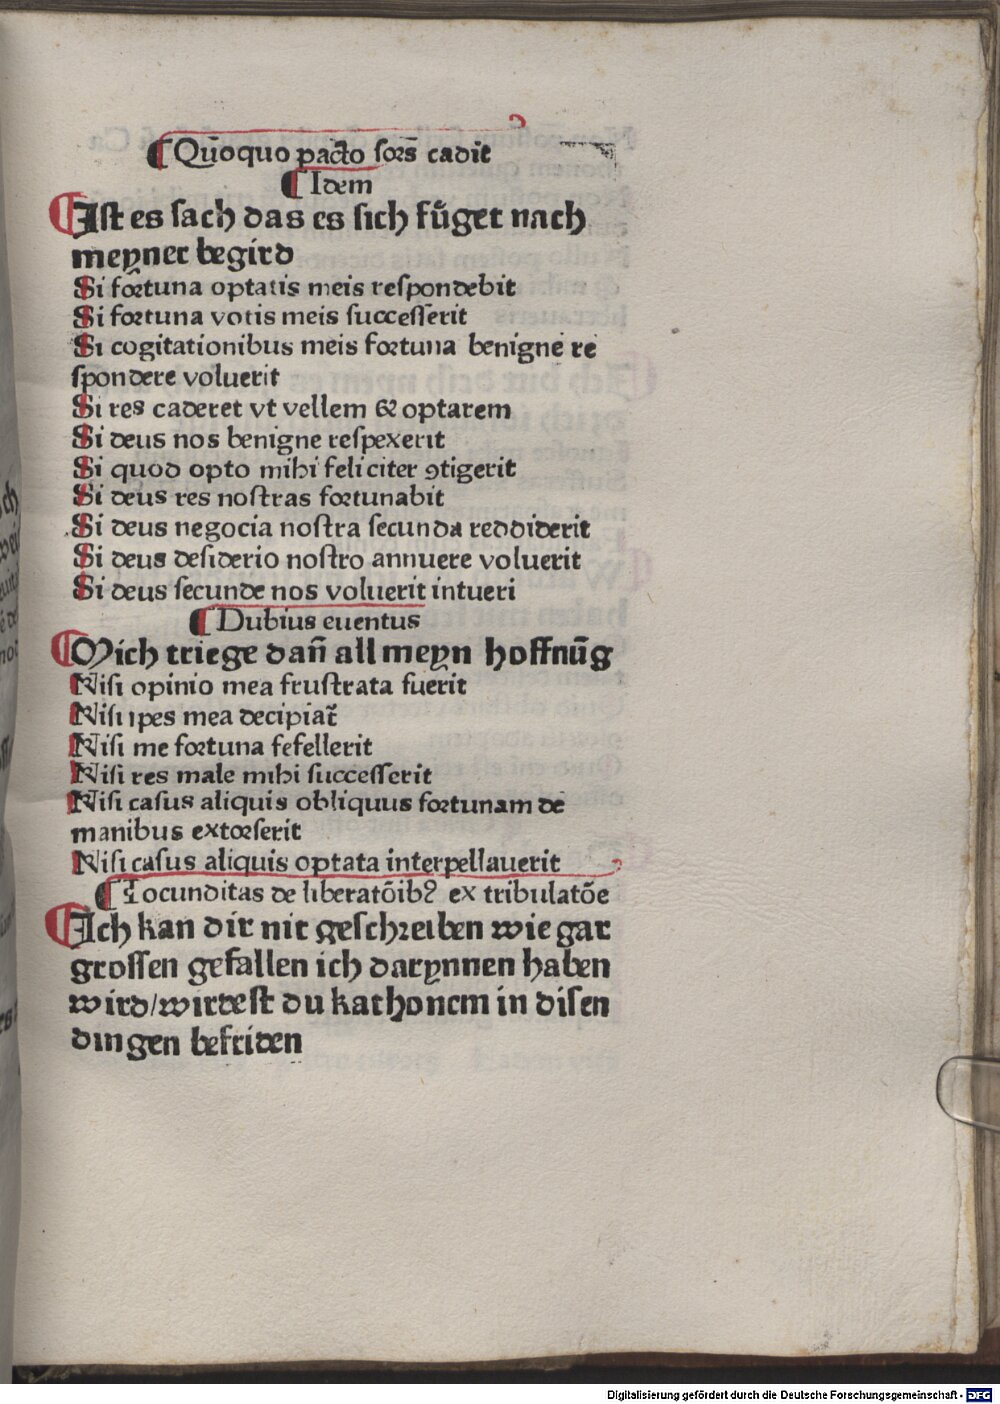 ¶ Qūoquo pacto sors̄ cadit
¶ Idem
¶ Ist es sach das es sich fuͤget nach
meyner begird
Si fortuna optatis meis respondebit
Si fortuna votis meis successerit
Si cogitationibus meis fortuna benigne re
spondere voluerit
Si res caderet vt vellem & optarem
Si deus nos benigne respexerit
Si quod opto mihi feliciter ꝯtigerit
Si deus res nostras fortunabit
Si deus negocia nostra secunda reddiderit
Si deus desiderio nostro annuere voluerit
Si deus secunde nos voluerit intueri
¶ Dubius euentus
¶ Mich triege dan̄ all meyn hoffnūg
Nisi opinio mea frustrata fuerit
Nisi spes mea decipiat᷑
Nisi me fortuna fefellerit
Nisi res male mihi successerit
Nisi casus aliquis obliquus fortunam de
manibus extorserit
Nisi casus aliquis optata interpellauerit
¶ Iocunditas de liberatōib⁹ ex tribulatōe
¶ Ich kan dir nit geschreiben wie gar
grossen gefallen ich darynnen haben
wird/wirdest du kathonem in disen
dingen befriden
Digitalisierung gefördert durch die Deutsche Forschungsgemeinschaft - DFG